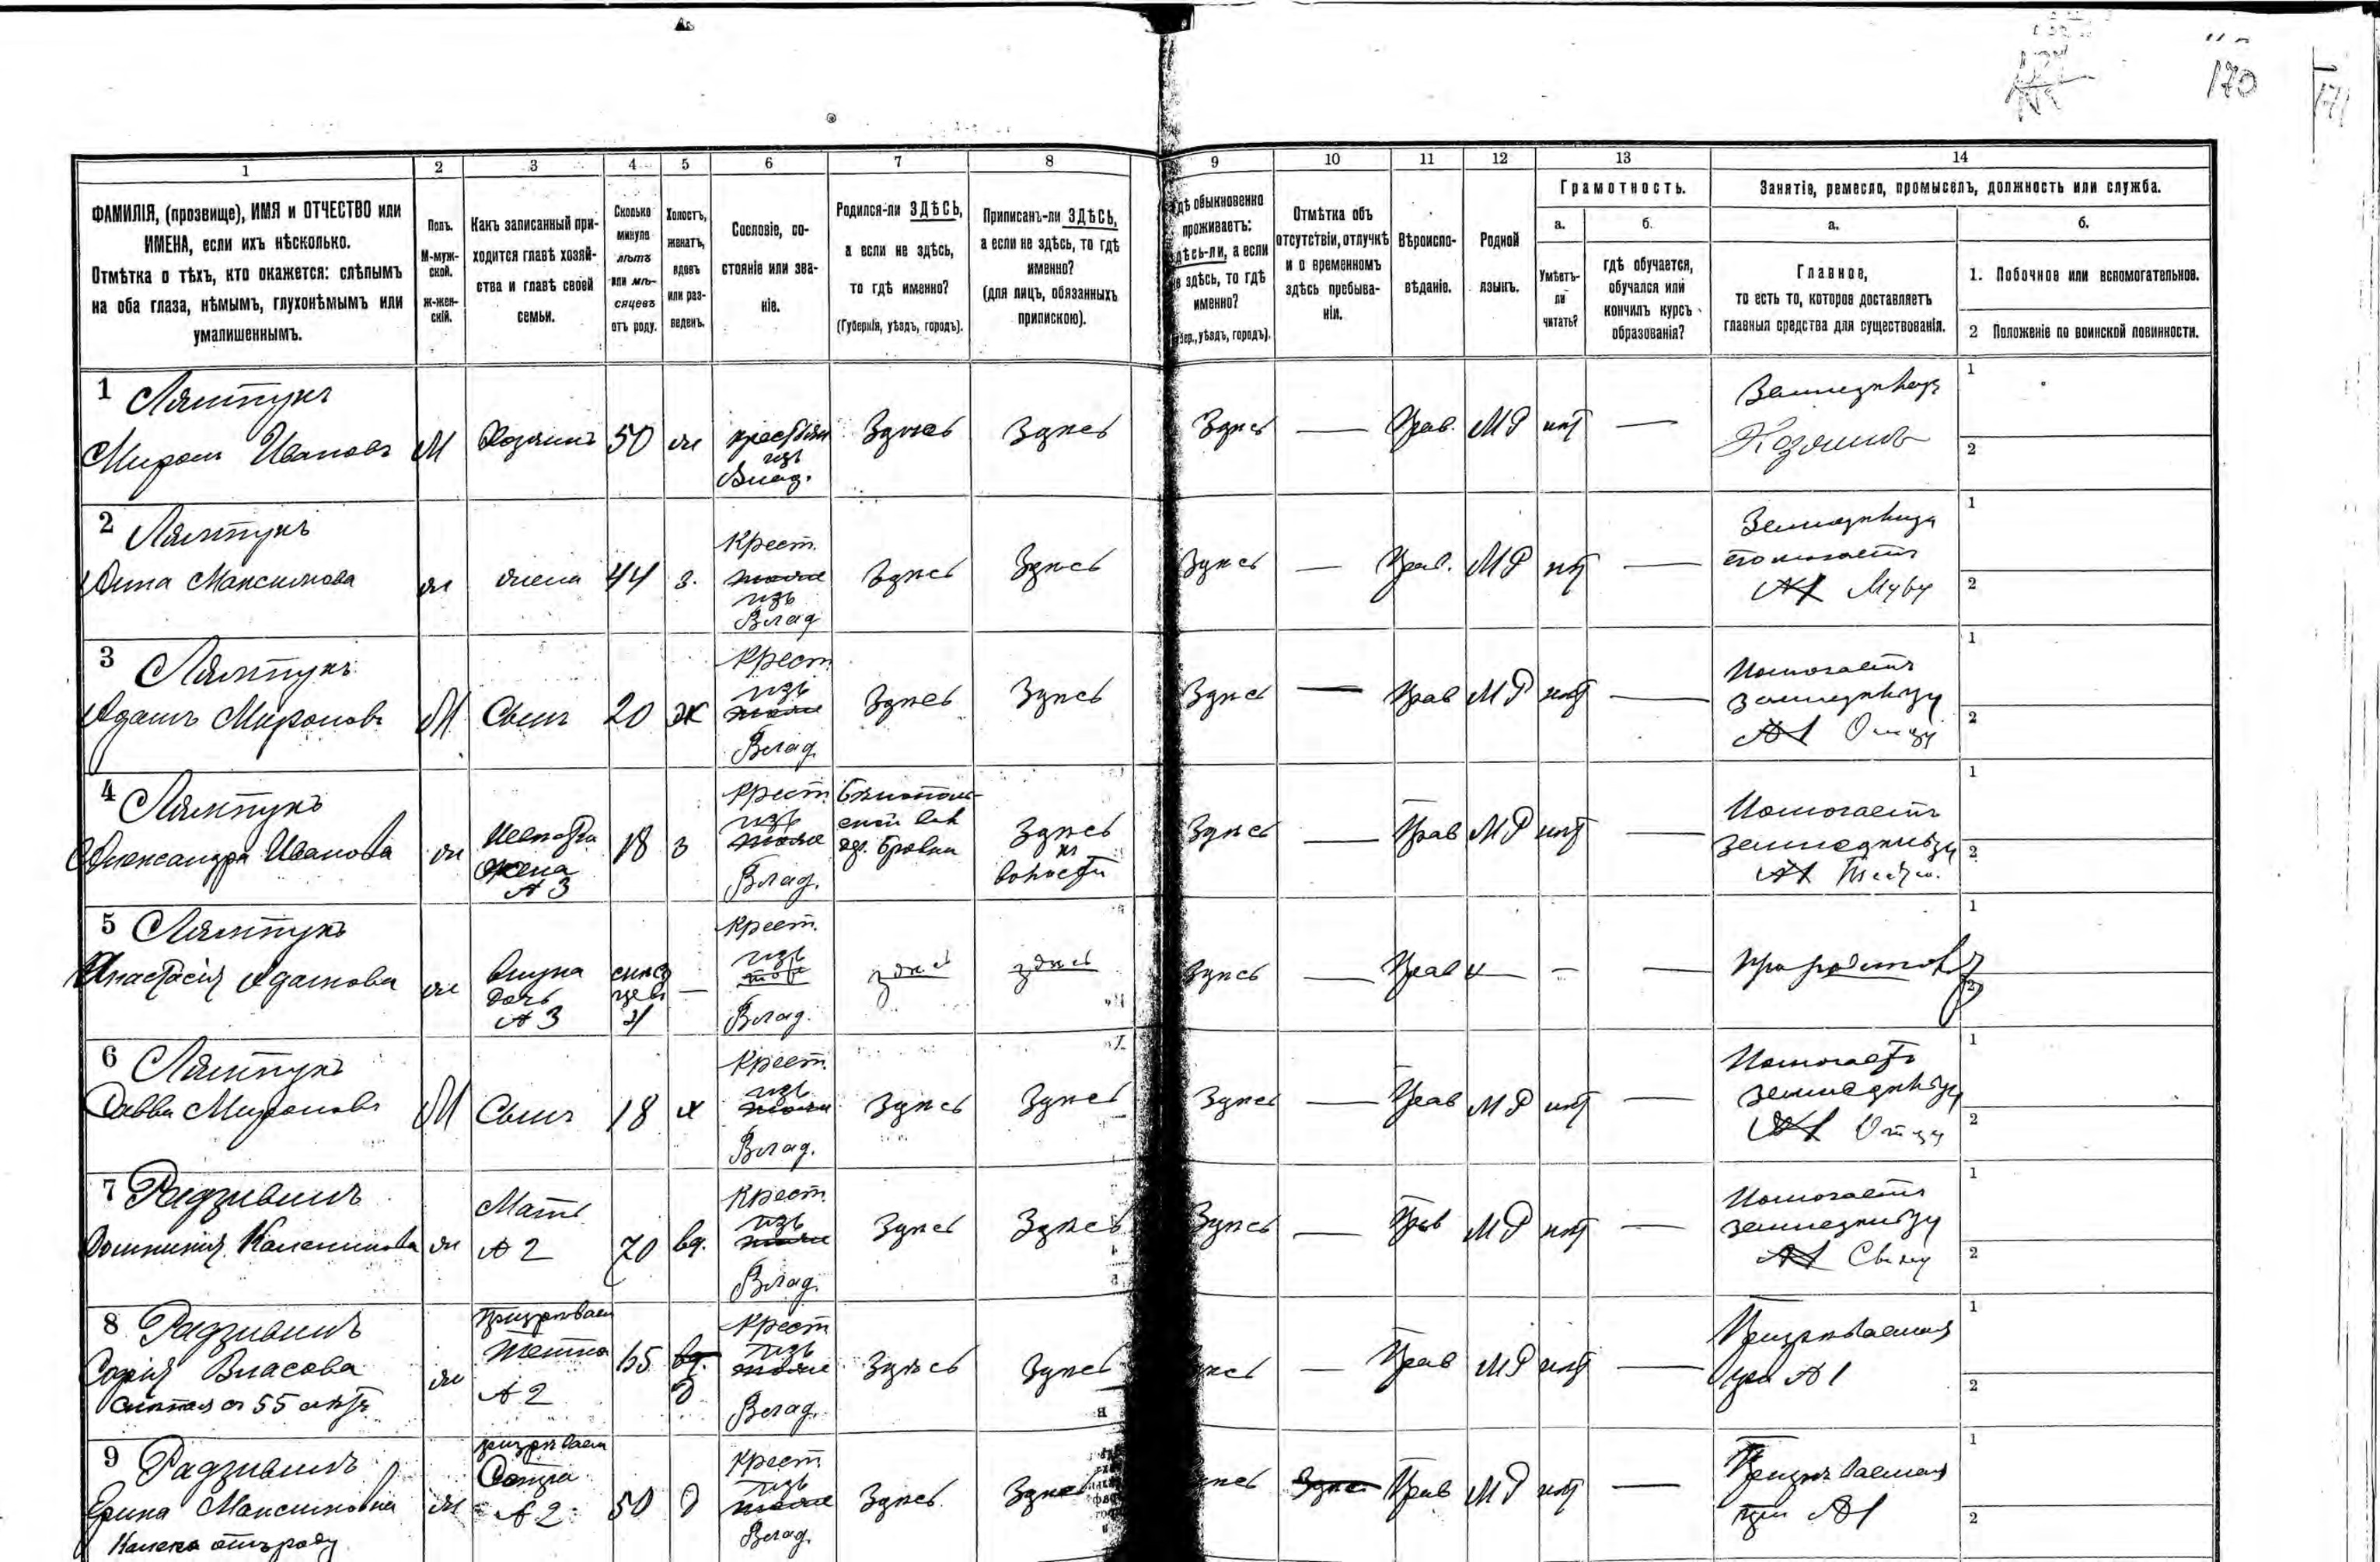 170
171
1
2
3
4
5
6
7
8
9
10
11
12
13
14
ФАМИЛІЯ, (прозвище), ИМЯ и ОТЧЕСТВО или
ИМЕНА, если ихъ нѣсколько.
Отмѣтка о тѣхъ, кто окажется: слѣпымъ
на оба глаза, нѣмымъ, глухонѣмымъ или
умалишеннымъ.
Полъ.
М-муж-
ской.
Ж-жен-
скій.
Какъ записанный при-
ходится главѣ хозяй-
ства и главѣ своей
семьи.
Сколько
минуло
лѣтъ
или мѣ-
сяцевъ
отъ роду.
Холостъ,
женатъ,
вдовъ
или раз-
веденъ.
Сословіе, со-
стояніе или зва-
ніе.
Родился-ли ЗДѢСЬ,
а если не здѣсь,
то гдѣ именно?
(Губернія, уѣздъ, городъ).
Приписанъ-ли ЗДѢСЬ,
а если не здѣсь, то гдѣ
именно?
(для лицъ, обязанныхъ
припискою).
обыкновенно
проживаетъ:
здѣсь-ли, а если
не здѣсь, то гдѣ
именно?
уѣздъ, городъ).
Отмѣтка объ
отсутствіи, отлучкѣ
и о временномъ
здѣсь пребыва-
ніи.
Вѣроиспо-
вѣданіе.
Родной
языкъ.
Грамотность.
а.
б.
Умѣетъ-
ли
читать?
гдѣ обучается,
обучался или
кончилъ курсъ
образованія?
Занятіе, ремесло, промыселъ, должность или служба.
а.
б.
Главное,
то есть то, которое доставляетъ
главныя средства для существованія.
1. Побочное или вспомогательное.
2 Положеніе по воинской повинности.
1 Лямтукъ
Миронъ Ивановъ
М
Хозяинъ
50
ж
крестьян
изъ
Влад.
Здѣсь
Здѣсь
Здѣсь
—
Прав.
МР
нѣт
—
Земледѣлец
Хозяинъ
1
2
2 Лямтукъ
Анна Максимова
ж
жена
44
з.
Крест.
изъ
Влад
Здѣсь
Здѣсь
Здѣсь
—
Прав.
МР
нѣт
—
помогаетъ
№1 Мужу
1
2
3 Лямтукъ
Адамъ Мироновъ
М
Сынъ
20
ж
Крест
изъ
Влад
Здѣсь
Здѣсь
Здѣсь
—
Прав
МР
нѣт
—
Помогаетъ
земледѣльцу
№1 Отцу
1
2
4 Лямтукъ
Александра Иванова
ж
Невѣстка
жена
№3
18
з
Крест
изъ
Влад.
Здѣсь
волости
Здѣсь
—
Прав
МР
нѣт
—
Помогаетъ
земледѣльцу
№1
1
2
5 Лямтукъ
Анастасія Адамова
ж
Внука
дочь
№3
—
Крест.
изъ
Влад.
здѣсь
здѣсь
Здѣсь
—
Прав
—
—
1
2
6 Лямтукъ
Савва Мироновъ
М
Сынъ
18
х
Крест.
изъ
Влад.
Здѣсь
Здѣсь
Здѣсь
—
Прав
МР
нѣт
—
Помогаетъ
земледѣльцу
№1 Отцу
1
2
7 Радзивилъ
ж
Мать
№2
70
вд.
Крест.
изъ
Влад.
Здѣсь
Здѣсь
Здѣсь
—
Прав
МР
нѣт
—
Помогаетъ
земледѣльцу
№1
1
2
8 Радзивилъ
Софія Власова
ж
тетка
№2
Крест
изъ
Влад.
Здѣсь
Здѣсь
—
Прав
МР
нѣт
—
Призрѣваемая
при №1
1
2
9 Радзивилъ
Максимовна
Калека отъ роду
ж
Сестра
№2
50
Крест
изъ
Влад.
Здѣсь
Здѣсь
Прав
МР
нѣт
—
Призрѣваемая
при №1
1
2